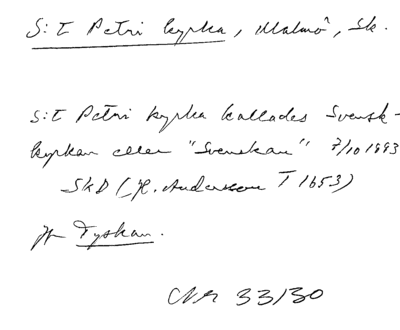 S:t Petri kyrka, Malmö, Sk.
S:t Petri kyrka kallades Svensk-
kyrkan eller "Svenskan" 7/10 1893
SkD (H. Andersson T 1653)
Jfr Tyskan.
33/30